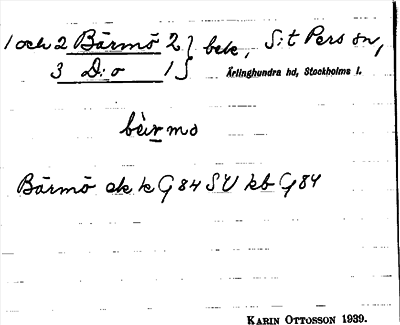 1 och 2 Bärmö 2 } bek, S:t Pers sn,
3 D:o 1 }
Ärlinghundra hd, Stockholms l.
bèrmo
Bärmö ek k G84 SV kb G84
KARIN OTTOSSON 1939.